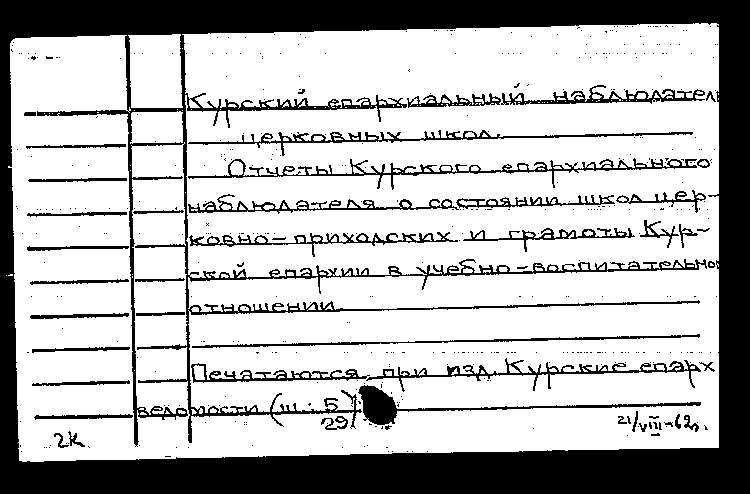 Курский епархиальный наблюдатель
церковных школ.
Отчеты Курского епархиального
наблюдателя о состоянии школ цер-
ковно-приходских и грамоты Кур-
ской епархии в учебно-воспитательном
отношении.
Печатаются при изд. Курские епарх
ведомости (ш: Б/29)
2к 21/VIII-62г.